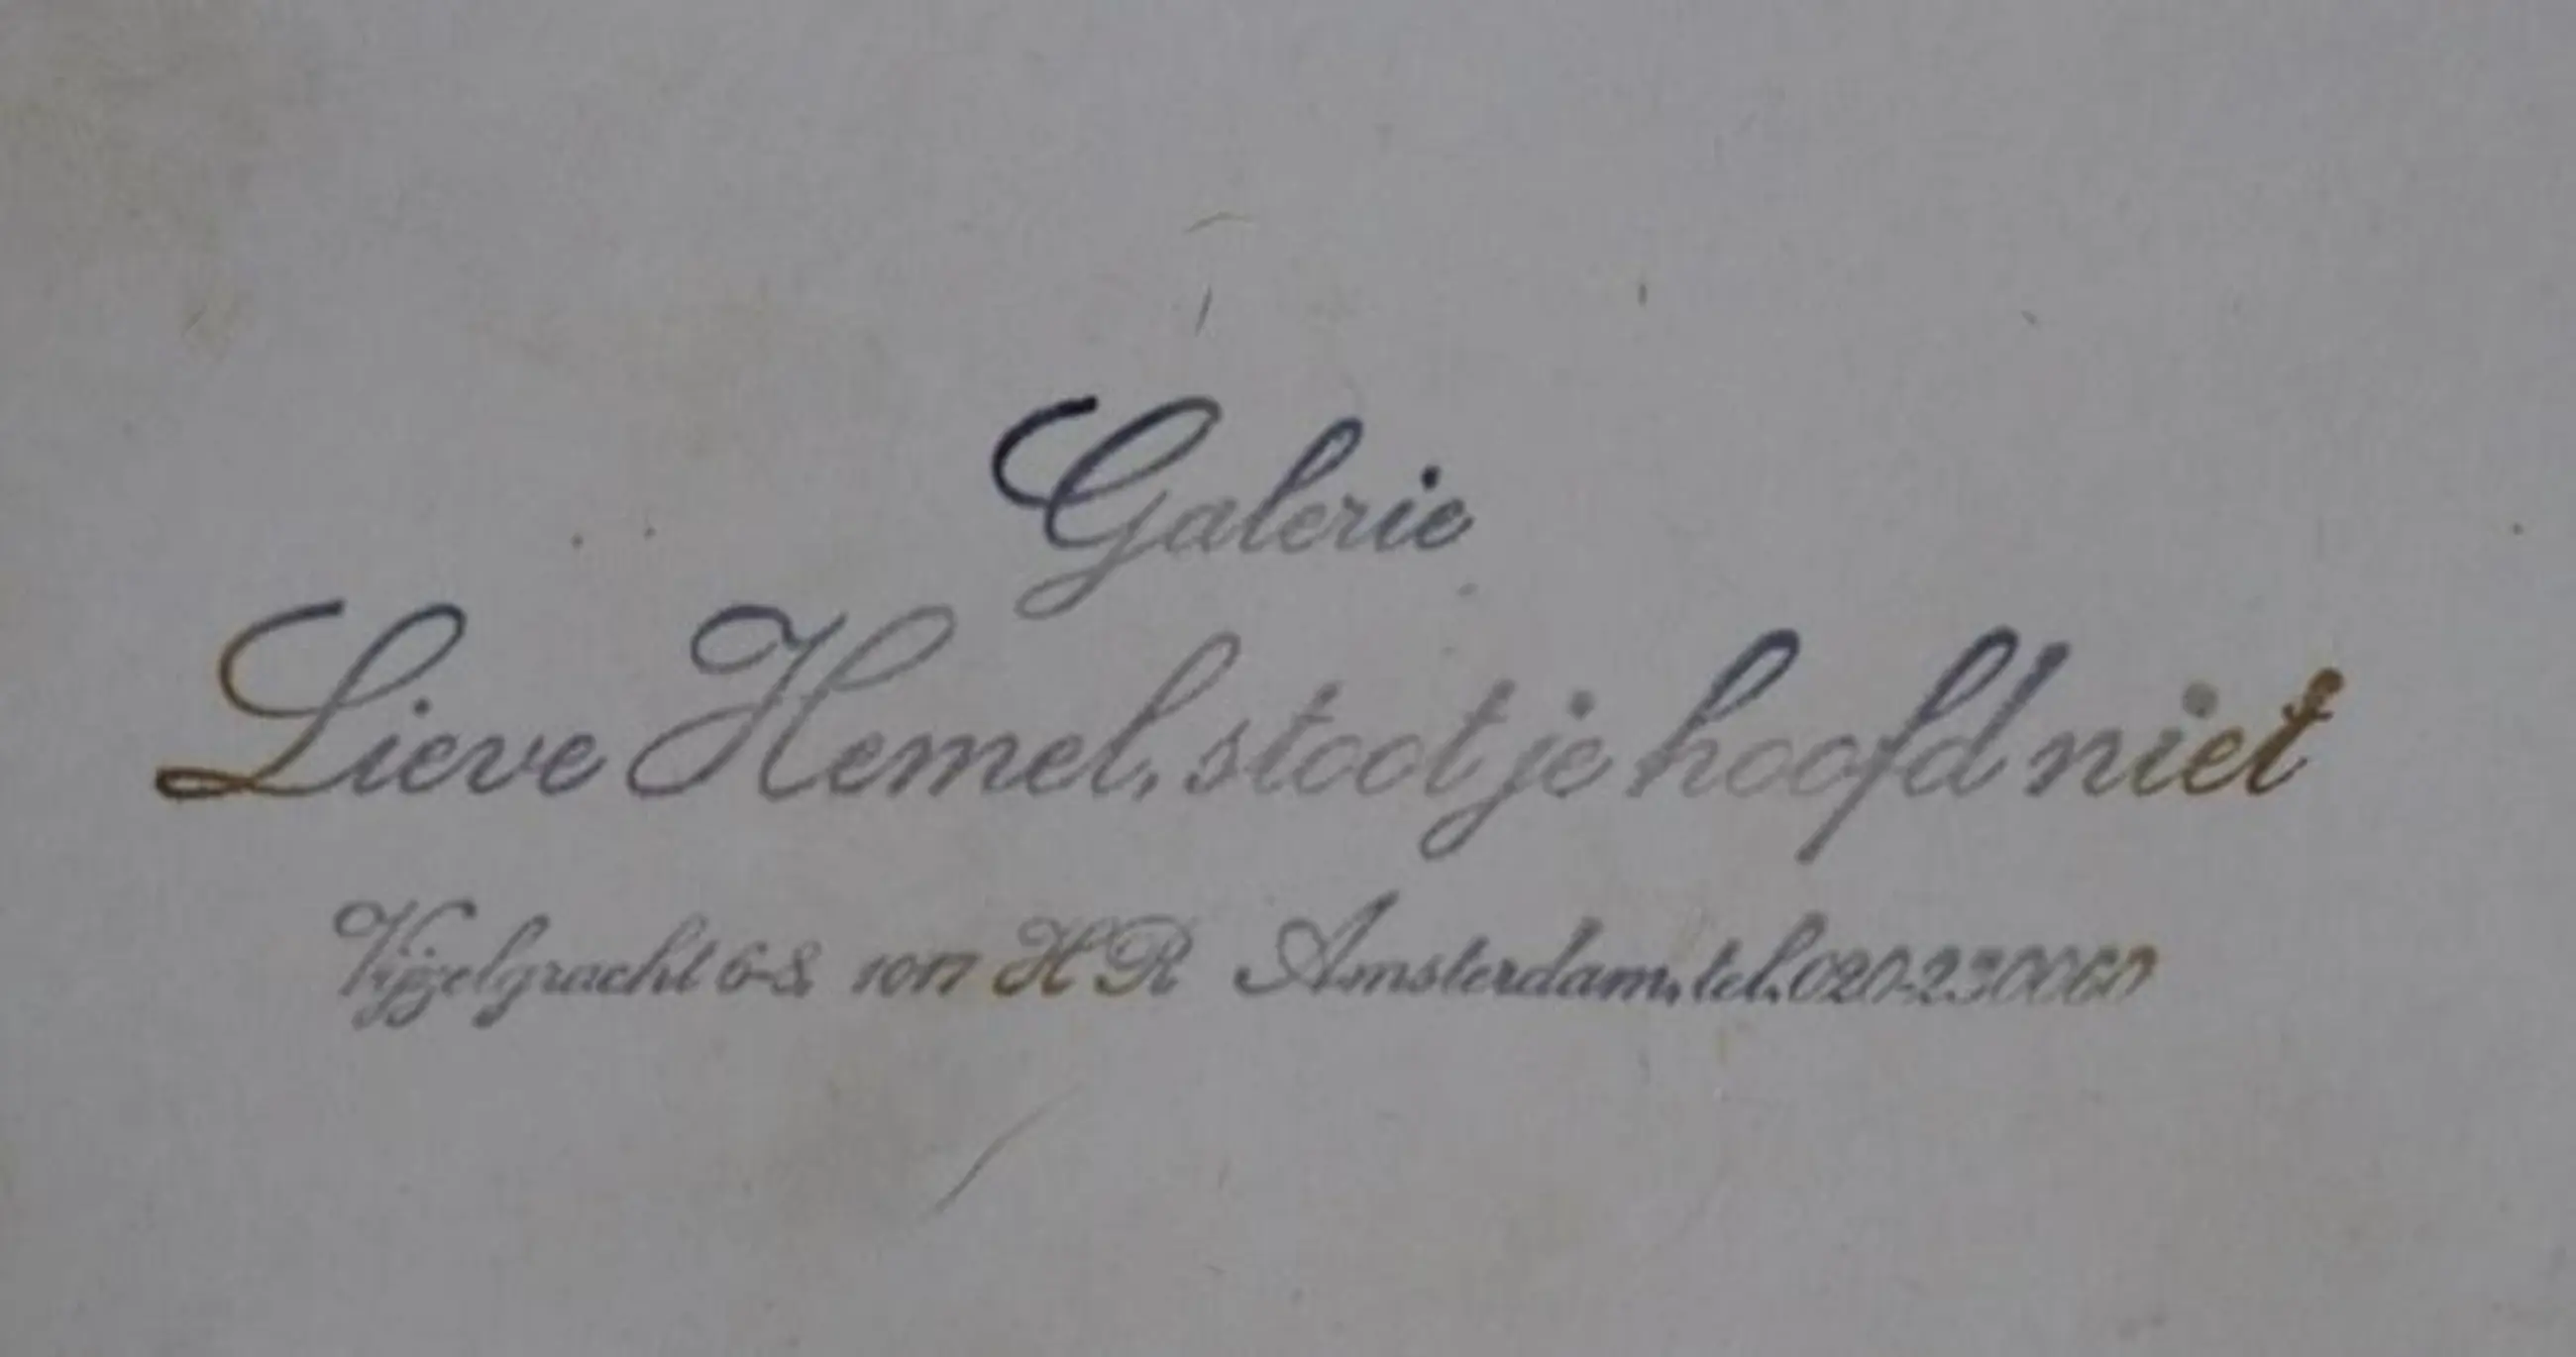 Galerie
Lieve Hemel, stoot je hoofd niet
Vijzelgracht 6-8 1017 HR Amsterdam, tel. 020-230060